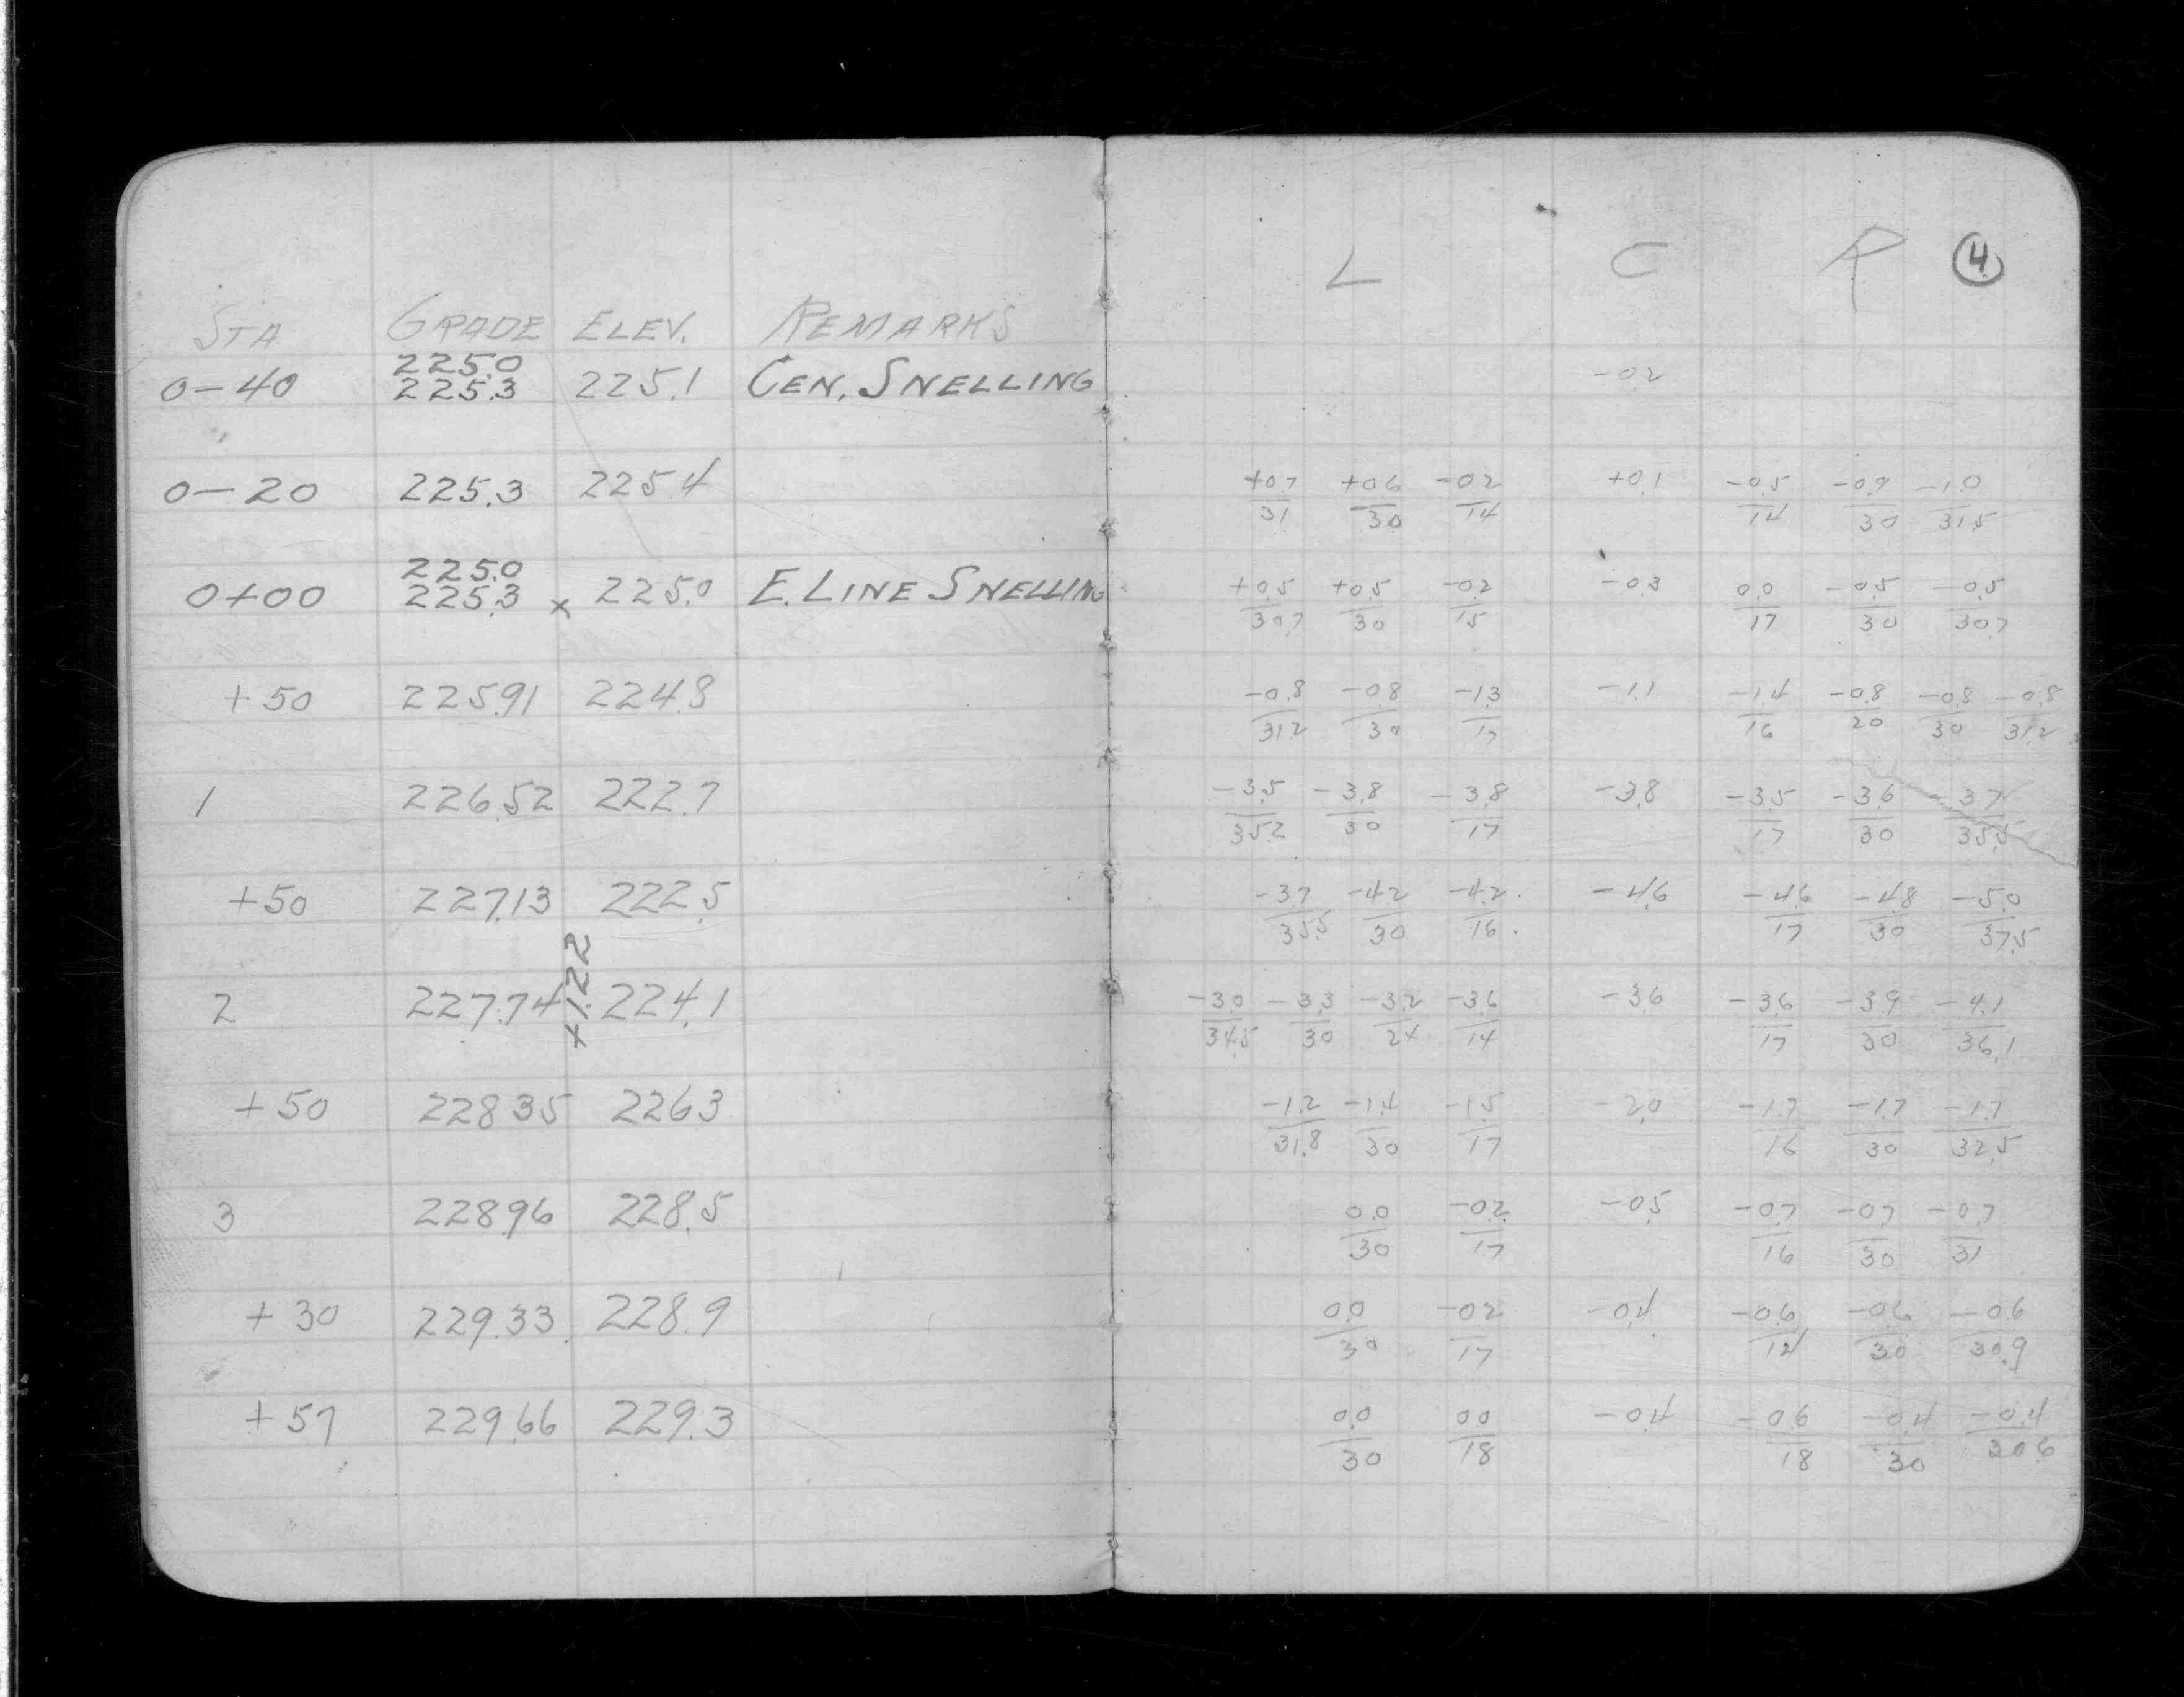 L C R 4
STA GRADE ELEV. REMARKS
225.0
0-40 225.3 225.1 CEN. SNELLING -0.2
0-20 225.3 225.4 +0.7 +0.6 -0.2 +0.1 -0.5 -0.9 -1.0
31 30 14 14 30 31.5
225.0
0+00 225.3 x 225.0 E. LINE SNELLING +0.5 +0.5 -0.2 -0.3 0.0 -0.5 -0.5
30.7 30 15 17 30 30.7
+50 225.91 224.8 -0.8 -0.8 -1.3 -1.1 -1.4 -0.8 -0.8 -0.8
31.2 30 17 16 20 30 31.2
1 226.52 222.7 -3.5 -3.8 -3.8 -3.8 -3.5 -3.6 -3.7
35.2 30 17 17 30 35.5
+50 227.13 222.5 -3.7 -4.2 -4.2 -4.6 -4.6 -4.8 -5.0
35.5 30 16 17 30 37.5
+1.22
2 227.74 224.1 -3.0 -3.3 -3.2 -3.6 -3.6 -3.6 -3.9 -4.1
34.5 30 24 14 17 30 36.1
+50 228.35 226.3 -1.2 -1.4 -1.5 -2.0 -1.7 -1.7 -1.7
31.8 30 17 16 30 32.5
3 228.96 228.5 0.0 -0.2 -0.5 -0.7 -0.7 -0.7
30 17 16 30 31
+30 229.33 228.9 0.0 -0.2 -0.4 -0.6 -0.6 -0.6
30 17 14 30 30.9
+57 229.66 229.3 0.0 0.0 -0.4 -0.6 -0.4 -0.4
30 18 18 30 30.6